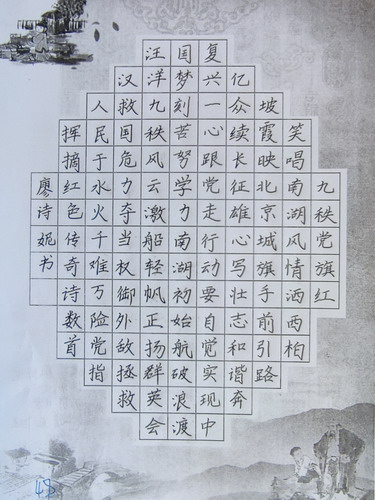 九秩党旗红
笑唱南湖风情洒西柏
坡霞映北京城旗手前引路
亿众续长征雄心写壮志和谐奔
复兴一心跟党走行动要自觉实现中
国梦刻苦努力学南湖初始航破浪渡
汪洋九秩风云激船轻帆正扬群英会
汉救国危力夺当权御外敌拯救
人民于水火千难万险党指
挥摘红色传奇诗数首
廖诗妮书
48